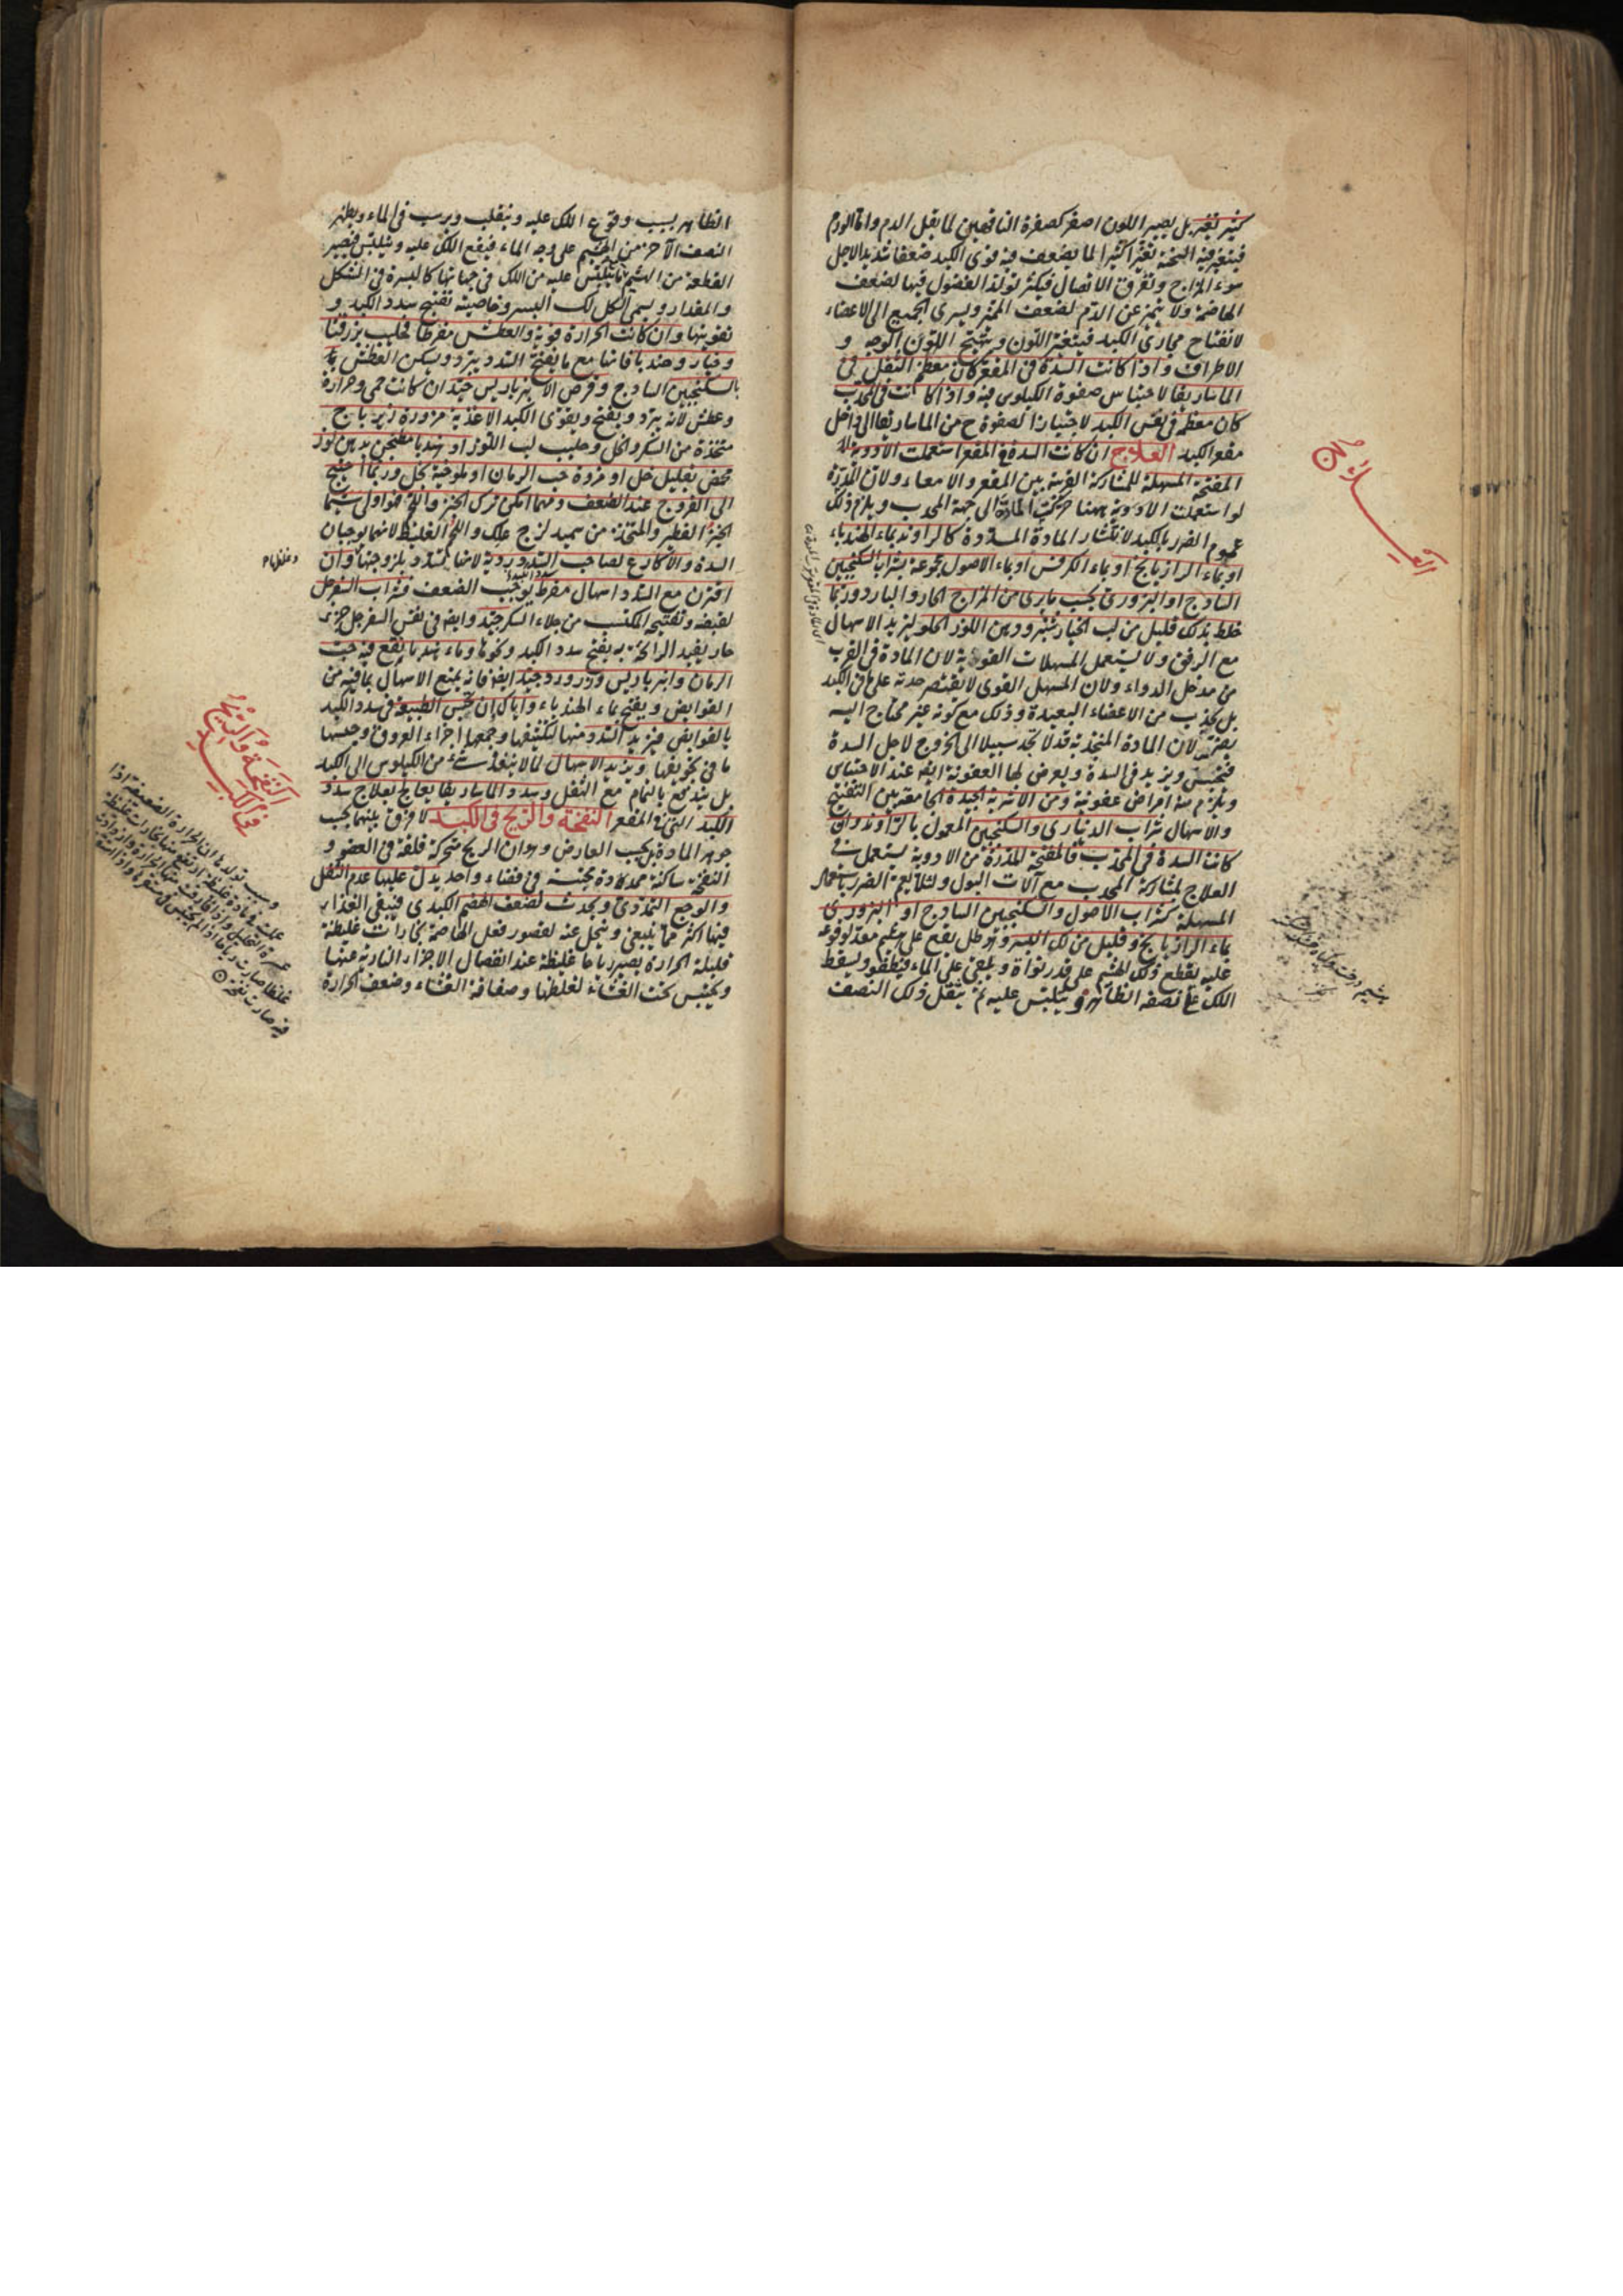 كثير تغير بل يصير اللون اصفر كصفرة الناقهين لما يقل الدم واما الورم
فيتغير فيه السحنة تغيرا كثيرا لما يضعف فيه قوى الكبد ضعفا شديدا لاجل
سوء المزاج وتفرق الاتصال فيكثر تولد الفضول فيها لضعف
الهاضمة ولا يتميز عن الدم لضعف المميزة ويسري الجميع الى الاعضاء
لانفتاح مجاري الكبد فيتغير اللون ويتهبج اللون الوجه و
الاطراف واذا كانت السدة في المقعر كان معظم الثقل في
الماساريقا لاحتباس صفوة الكيلوس فيه واذا كانت في المحدب
كان معظمه في نفس الكبد لاجتياز الصفوة ح من الماساريقا الى داخل
مقعر الكبد العلاج ان كانت السدة في المقعر استعملت الادوية
المفتحة المسهلة للمشاركة القريبة بين المقعر والامعاء ولان المدرة
لو استعملت الادوية ههنا حركت المادة الى جهة المحدب ويلزم ذلك
عموم الضرر بالكبد لانتشار المادة المسددة كالراوند بماء الهندباء
او بماء الرازيانج او بماء الكرفس او بماء الاصول مجموعة بشراب السكنجبين
الساذج او البزوري بحسب ما يرى من المزاج الحار والبارد وربما
خلط بذلك قليل من لب الخيارشنبر ودهن اللوز الحلو ليزيد الاسهال
مع الرفق ولا يستعمل المسهلات القوية لان المادة في القرب
من مدخل الدواء ولان المسهل القوي لا يقتصر حدته على ما في الكبد
بل يجذب من الاعضاء البعيدة وذلك مع كونه غير محتاج اليه
يضر لان المادة المنجذبة قد لا تجد سبيلا الى الخروج لاجل السدة
فتحتبس ويزيد في السدة ويعرض لها العفونة ايضا عند الاحتباس
ويلزم منه امراض عفونية ومن الاشربة الجيدة الجامعة بين التفتيح
والاسهال شراب الديناري والسكنجبين المعمول بالراوند وان
كانت السدة في المحدب فالمفتحة المدرة من الادوية يستعمل في
العلاج لمشاركة المحدب مع آلات البول ولئلا يعم الضرر باستعمال
المسهلة كشراب الاصول والسكنجبين الساذج او البزوري
بماء الرازيانج وقليل من لك البسر وهو طل يقع على هشيم معد لوقوعه
عليه يقطع ذلك الهشيم على قدر نواة ويلقى على الماء فيطفو ويسقط
اللك على نصفه الظاهر ويتلبس عليه ثم يثقل ذلك النصف
العلاج
الظاهر بسبب وقوع اللك عليه وينقلب ويرسب في الماء ويظهر
النصف الآخر من الهشيم على وجه الماء فيقع اللك عليه ويتلبس فيصير
القطعة من الهشيم بما يتلبس عليه من اللك في جهاتها كالبسرة في الشكل
والمقدار ويسمى الكل لك البسر وخاصيته تفتيح سدد الكبد و
تقويتها وان كانت الحرارة قوية والعطش مفرطا فحليب بزر قثا
وخيار وهندبا فانها مع ما يفتح السدد يبرد ويسكن العطش
بالسكنجبين الساذج وقرص الانبرباريس جيد ان كانت حمى وحرارة
وعطش لانه يبرد ويفتح ويقوي الكبد الاغذية مزورة زيرباج
متخذة من السكر والخل وحليب لب اللوز او هندبا مطجن بدهن لوز
محمض بقليل خل او مزورة حب الرمان او ملوخية بخل وربما احتيج
الى الفروج عند الضعف ومهما امكن ترك الخبز واللحم فهو اولى سيما
الخبز الفطير والمتخذ من سميد لزج علك واللحم الغليظ لانهما يوجبان
السدة والاكارع لصاحب السدد ردية لانها تسدد بلزوجتها وان
اقترن مع السدد اسهال مفرط يوجب الضعف فشراب السفرجل
لقبضه وتفتيحه المكتسب من جلاء السكر جيد وايضا في نفس السفرجل جزء
حار يفيد الرائحة به يفتح سدد الكبد وكونها وماء هندبا ينقع فيه حب
الرمان وانبرباريس وزر ورد جيد ايضا فانه يمنع الاسهال بما فيه من
القوابض ويفتح بماء الهندباء واياك ان تحبس الطبيعة في سدد الكبد
بالقوابض فيزيد السدد منها لتكثيفها وجمعها اجزاء العروق وحبسها
ما في تجويفها ويزيد الاسهال لما لا ينفذ شيء من الكيلوس الى الكبد
بل يندفع بالتمام مع الثفل وسدد الماساريقا يعالج بعلاج سدد
الكبد التي في المقعر النفخة والريح في الكبد لا فرق بينهما بحسب
جوهر المادة بل بحسب العارض وهو ان الريح متحركة قلقة في العضو و
النفخة ساكنة ممددة محتبسة في فضاء واحد يدل عليها عدم الثقل
والوجع التمددي ويحدث لضعف الهضم الكبدي فيبقى الغذاء
فيها اكثر مما ينبغي ويتحلل عنه لقصور فعل الهاضمة بخارات غليظة
قليلة الحرارة يصير رياحا غليظة عند انفصال الاجزاء النارية عنها
ويحتبس تحت الغشاء لغلظها وصفاقة الغشاء وضعف الحرارة
النفخة والريح
في الكبد
وسبب تولدها ان الحرارة الضعيفة اذا
عملت في مادة غليظة ارتفع منها بخارات غليظة
غلظا صارت رياحا
فيه صارت نفخة